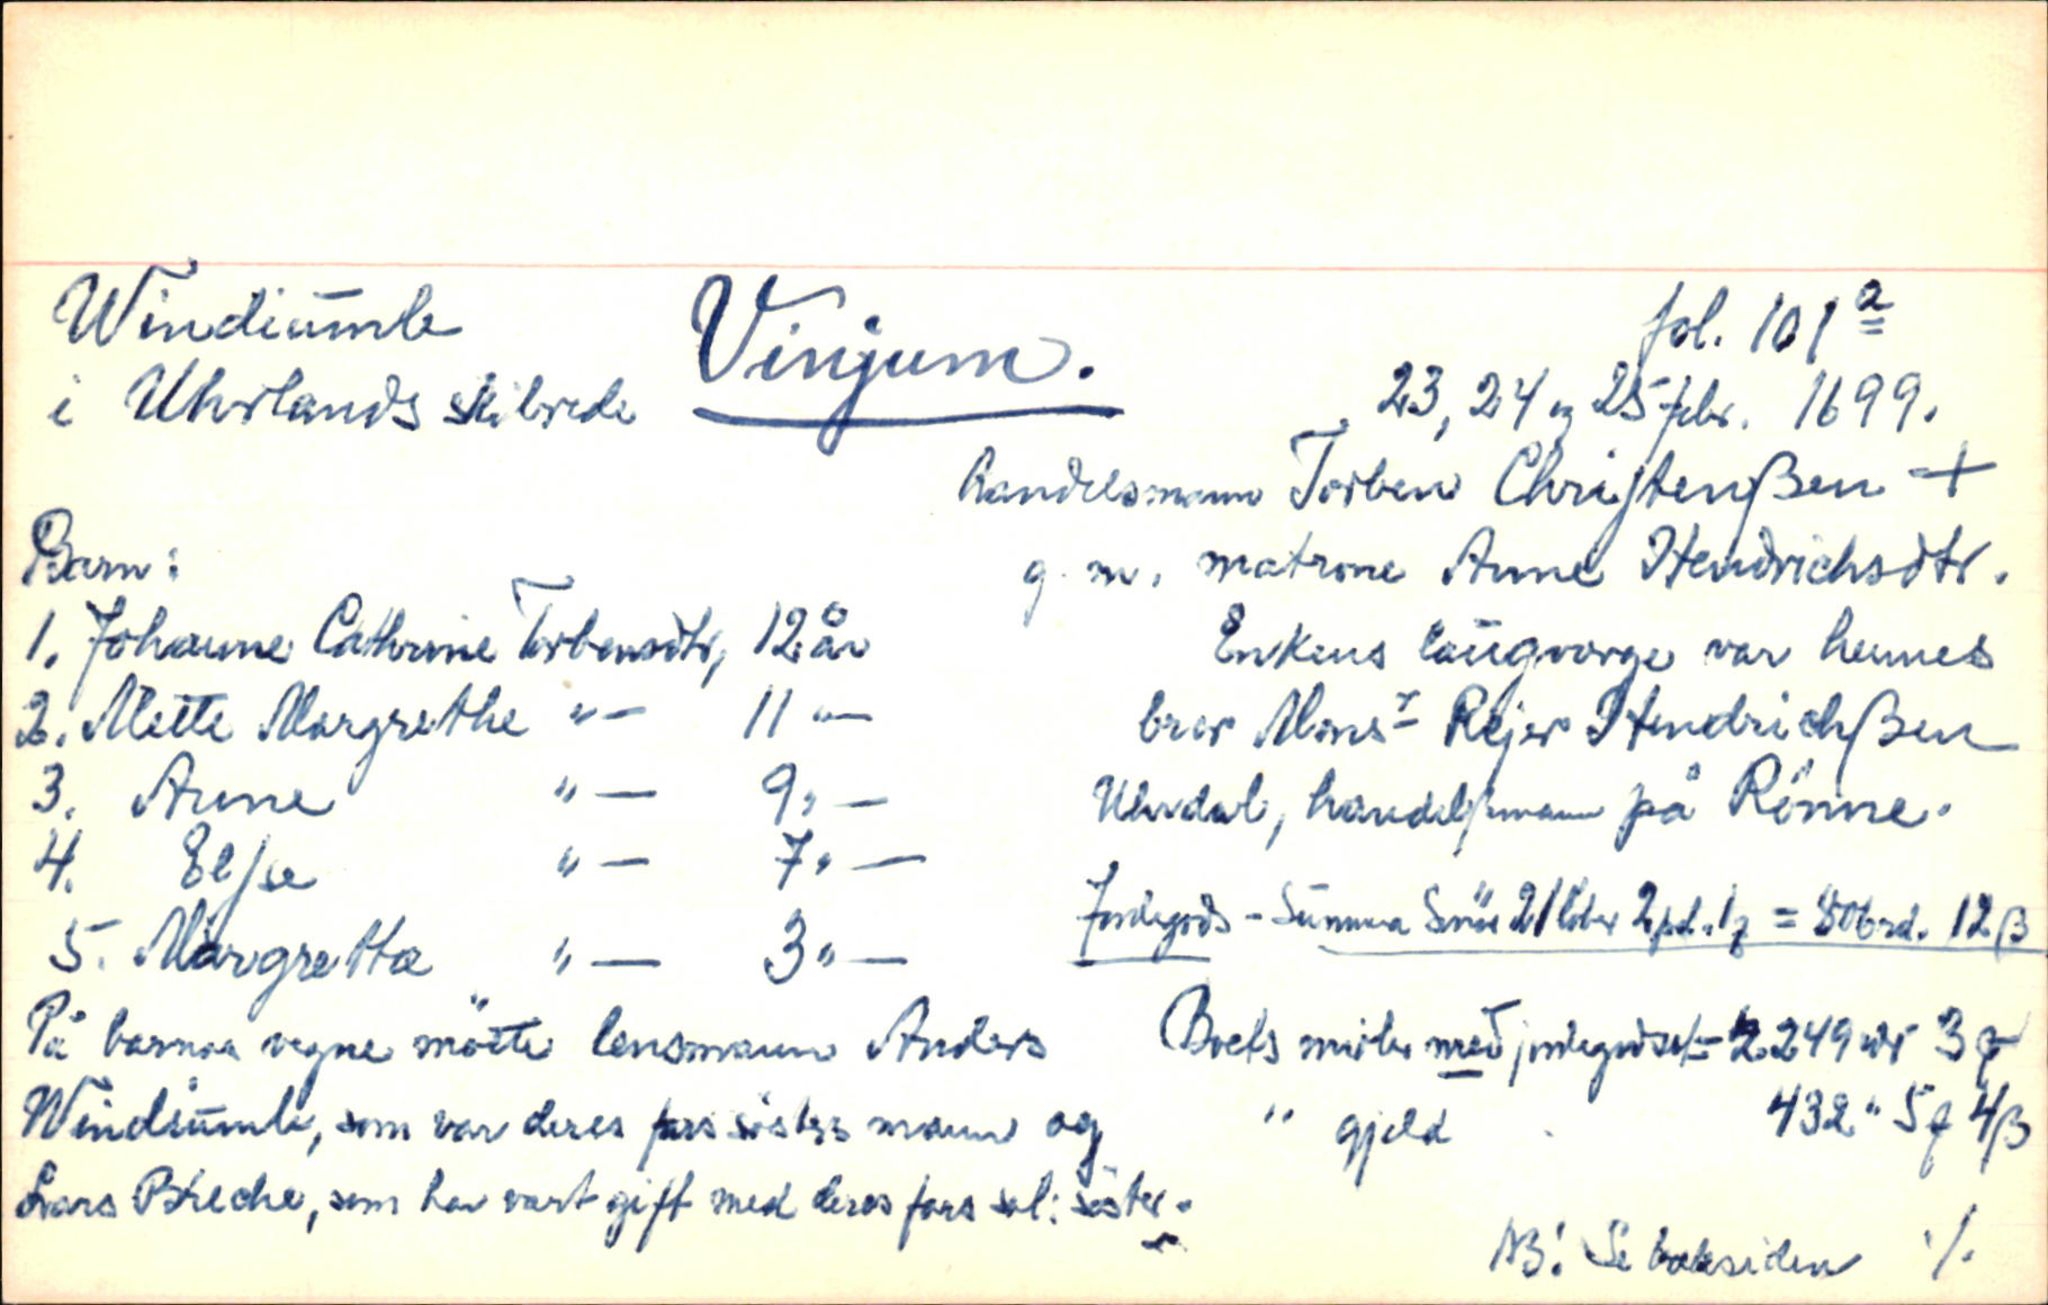 Windiümb
i Uhrlands skibrede
Vinjum.
fol. 101 a
23, 24 og 25 febr. 1699.
handelsmann Torben Christenßen +
g. m. matrone Anne Hendrichsdtr.
Enkens laügvorge var hennes
bror Mons r Rejer Hendrichßen
Uhrdal, handelsmann på Rönne.
Jordegods - Summa 21 löber 2 pd. 1 = rd. 12 ß
Boets midler med jordegodset = 2249 rdr 3
" gjeld 432 " 5 4 ß
NB! Se baksiden ./.
Barn:
1. Johanne Cathrine Torbensdtr, 12 år
2. Mette Margrethe " — 11 " —
3. Anne " — 9 " —
4. Else " — 7 " —
5. Margretta " — 3 " —
På barnas vegne mötte lensmann Anders
Windiümb, som var deres fars sösters mann og
Lars Breche, som har vært gift med deres fars sal: söster.